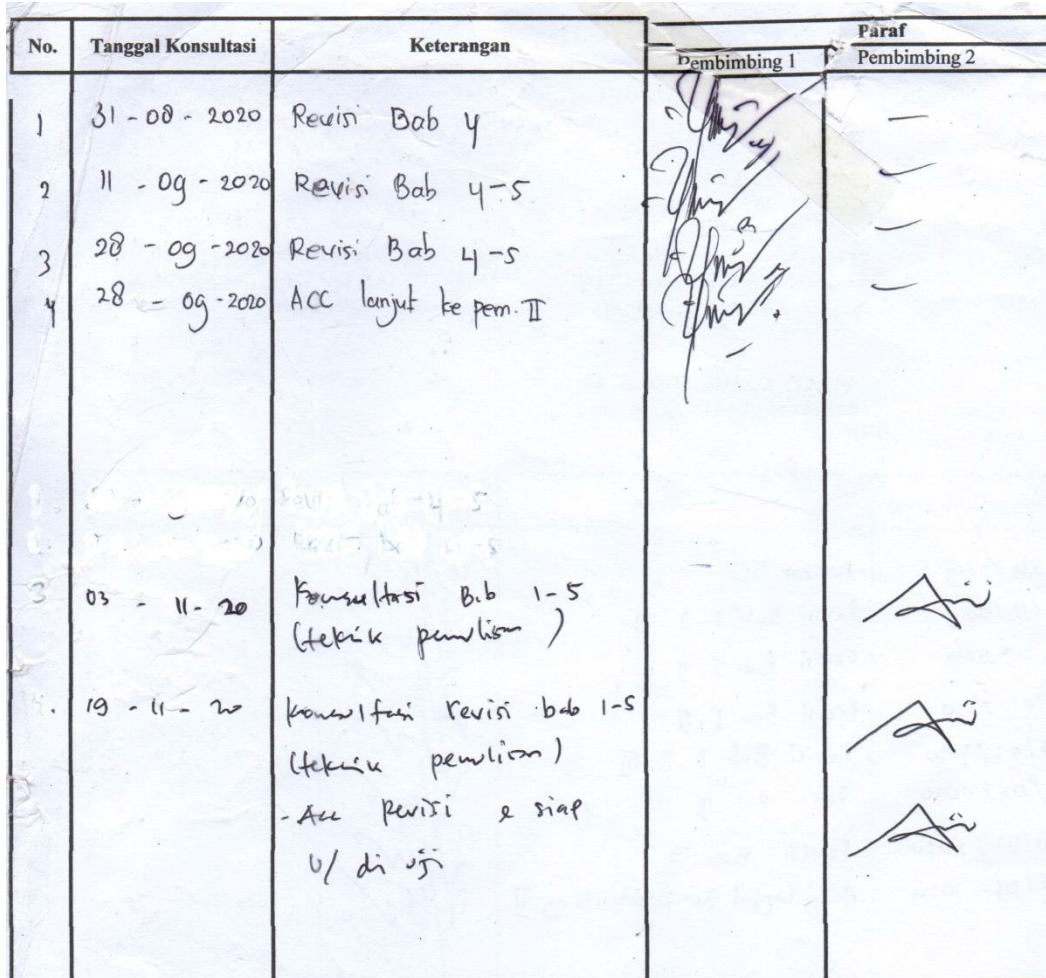 No. Tanggal Konsultasi Keterangan Paraf
Pembimbing 1 Pembimbing 2
1 31 - 08 - 2020 Revisi Bab 4 —
2 11 - 09 - 2020 Revisi Bab 4-5 —
3 28 - 09 - 2020 Revisi Bab 4-5 —
4 28 - 09 - 2020 ACC lanjut ke pem. II —
3 03 - 11 - 20 Konsultasi Bab 1-5
(teknik penulisan)
4. 19 - 11 - 20 Konsultasi revisi bab 1-5
(teknik penulisan)
- Acc Revisi & siap
U/ di uji